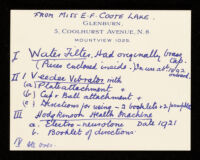 FROM MISS E.F. COOTE LAKE.
GLENBURN,
5, COOLHURST AVENUE, N. 8
MOUNTVIEW 1025.
I Water Filter, Had originally brass Cap.
(Pieces enclosed inside. In use at 1921
II 1 Veedee Vibrator with
(a) Plate attachment +
(b) Cap + Ball attachment +
(c) Directions for using - 2 booklets + 2 pamphlets
III Hodgkinson Health Machine
a. Electro-neurotone Date 1921
b. Booklet of directions